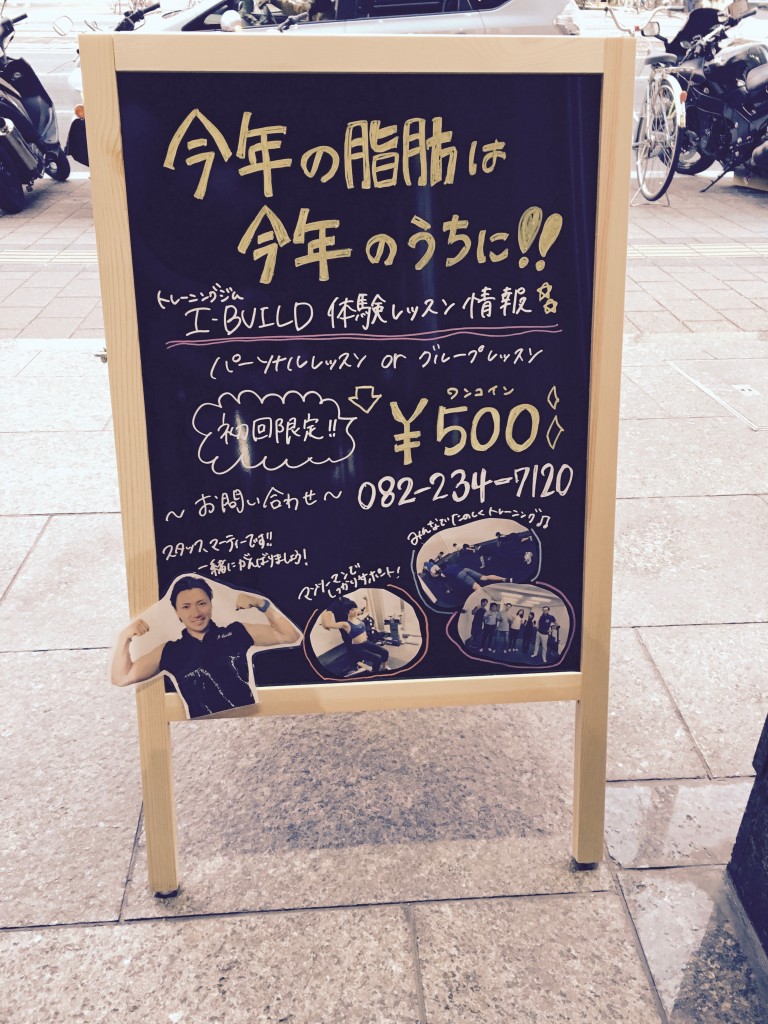 今年の脂肪は
今年のうちに!!
トレーニングジム
I-BUILD 体験レッスン情報
パーソナルレッスン or グループレッスン
初回限定!!
ワンコイン
¥500
~お問い合わせ~ 082-234-7120
みんなでたのしくトレーニング♫
スタッフ、マーティーです!!
一緒にがんばりましょう!
マンツーマンで
しっかりサポート!